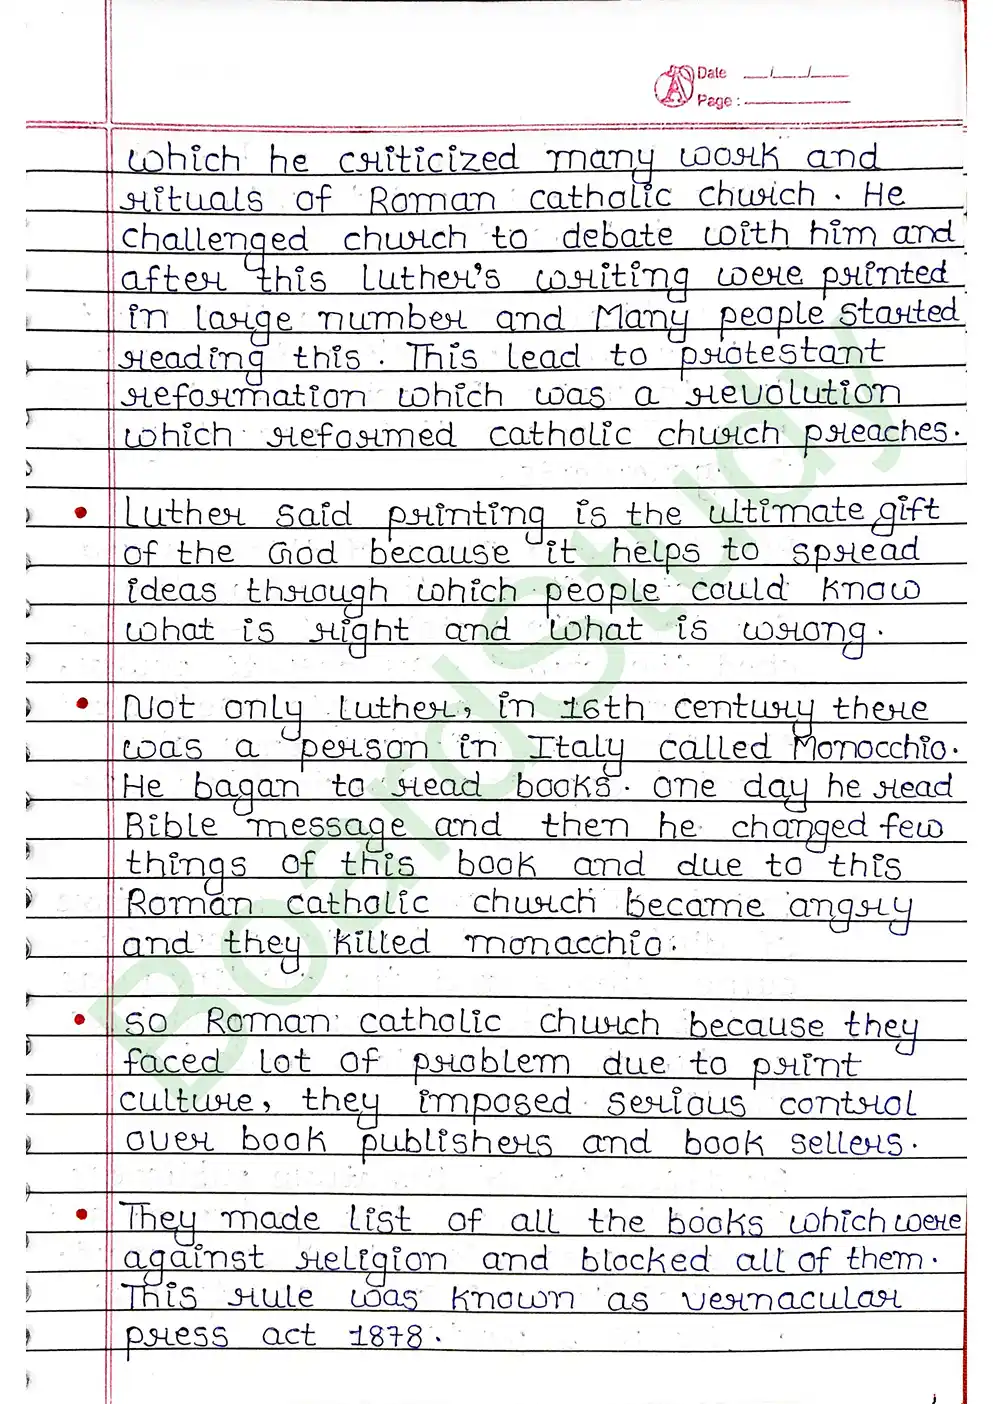 Date __/__/__
Page :
which he criticized many work and
rituals of Roman catholic church . He
challenged church to debate with him and
after this luther's writing were printed
in large number and Many people started
reading this . This lead to protestant
reformation which was a revolution
which reformed catholic church preaches .
• Luther said printing is the ultimate gift
of the God because it helps to spread
ideas through which people could know
what is right and what is wrong .
• Not only luther, in 16th century there
was a person in Italy called Monocchio .
He bagan to read books . one day he read
Bible message and then he changed few
things of this book and due to this
Roman catholic church became angry
and they killed monacchio .
• so Roman catholic church because they
faced lot of problem due to print
culture, they imposed serious control
over book publishers and book sellers .
• They made list of all the books which were
against religion and blocked all of them .
This rule was known as vernacular
press act 1878 .
BoardStudy